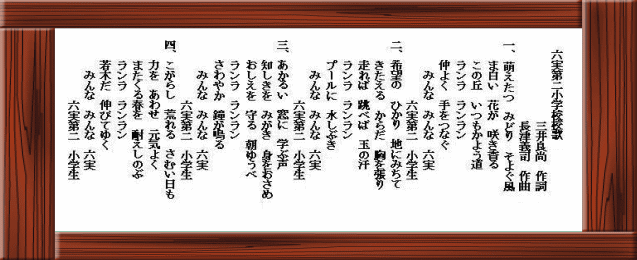 六実第二小学校校歌
三井良尚 作詞
長津義司 作曲
一、萌えたつ みどり そよぐ風
ま白い 花が 咲き香る
この丘 いつもかよう道
ランラ ランラ ランラン
仲よく 手をつなぐ
みんな みんな 六実
六実第二 小学生
二、希望の ひかり 地にみちて
きたえる からだ 胸を張り
走れば 跳べば 玉の汗
ランラ ランラ ランラン
プールに 水しぶき
みんな みんな 六実
六実第二 小学生
三、あかるい 窓に 学ぶ声
知しきを みがき 身をおさめ
おしえを 守る 朝ゆうべ
ランラ ランラ ランラン
さわやか 鐘が鳴る
みんな みんな 六実
六実第二 小学生
四、こがらし 荒れる さむい日も
力を あわせ 元気よく
またくる春を 耐えしのぶ
ランラ ランラ ランラン
若木だ 伸びてゆく
みんな みんな 六実
六実第二 小学生